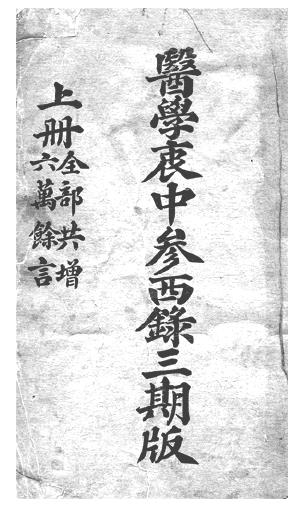 醫學衷中參西錄三期版
上册
全部共增
六萬餘言